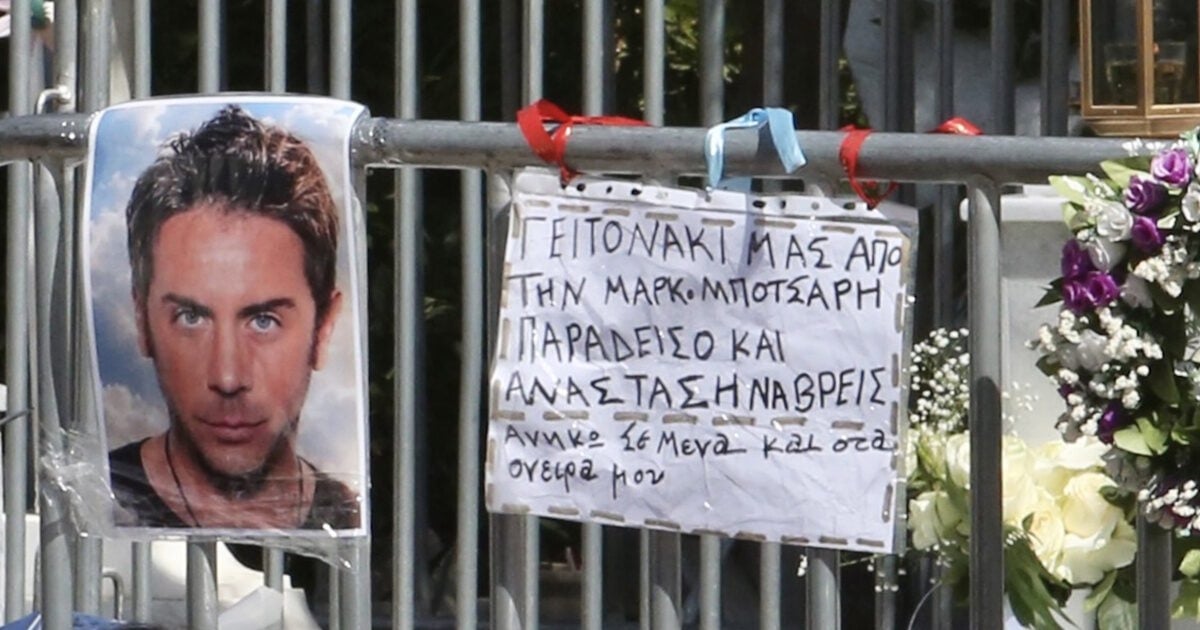 ΓΕΙΤΟΝΑΚΙ ΜΑΣ ΑΠΟ
ΤΗΝ ΜΑΡΚ. ΜΠΟΤΣΑΡΗ
ΠΑΡΑΔΕΙΣΟ ΚΑΙ
ΑΝΑΣΤΑΣΗ ΝΑ ΒΡΕΙΣ
Ανηκω σε μενα και στα
ονειρα μου